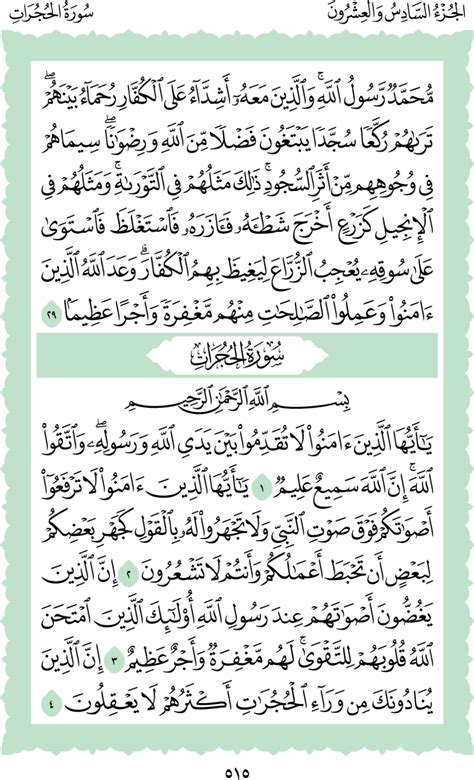 الجُزْءُ السَّادِسُ وَالعِشْرُونَ
سُورَةُ الحُجُرَاتِ
مُّحَمَّدٌ رَّسُولُ ٱللَّهِۚ وَٱلَّذِينَ مَعَهُۥٓ أَشِدَّآءُ عَلَى ٱلْكُفَّارِ رُحَمَآءُ بَيْنَهُمْۖ
تَرَىٰهُمْ رُكَّعًا سُجَّدًا يَبْتَغُونَ فَضْلًا مِّنَ ٱللَّهِ وَرِضْوَٰنًاۖ سِيمَاهُمْ
فِى وُجُوهِهِم مِّنْ أَثَرِ ٱلسُّجُودِۚ ذَٰلِكَ مَثَلُهُمْ فِى ٱلتَّوْرَىٰةِۚ وَمَثَلُهُمْ فِى
ٱلْإِنجِيلِ كَزَرْعٍ أَخْرَجَ شَطْـَٔهُۥ فَـَٔازَرَهُۥ فَٱسْتَغْلَظَ فَٱسْتَوَىٰ
عَلَىٰ سُوقِهِۦ يُعْجِبُ ٱلزُّرَّاعَ لِيَغِيظَ بِهِمُ ٱلْكُفَّارَۗ وَعَدَ ٱللَّهُ ٱلَّذِينَ
ءَامَنُوا۟ وَعَمِلُوا۟ ٱلصَّـٰلِحَـٰتِ مِنْهُم مَّغْفِرَةً وَأَجْرًا عَظِيمًۢا ٢٩
سُورَةُ الحُجُرَاتِ
بِسْمِ ٱللَّهِ ٱلرَّحْمَـٰنِ ٱلرَّحِيمِ
يَـٰٓأَيُّهَا ٱلَّذِينَ ءَامَنُوا۟ لَا تُقَدِّمُوا۟ بَيْنَ يَدَىِ ٱللَّهِ وَرَسُولِهِۦۖ وَٱتَّقُوا۟
ٱللَّهَۚ إِنَّ ٱللَّهَ سَمِيعٌ عَلِيمٌ ١ يَـٰٓأَيُّهَا ٱلَّذِينَ ءَامَنُوا۟ لَا تَرْفَعُوٓا۟
أَصْوَٰتَكُمْ فَوْقَ صَوْتِ ٱلنَّبِىِّ وَلَا تَجْهَرُوا۟ لَهُۥ بِٱلْقَوْلِ كَجَهْرِ بَعْضِكُمْ
لِبَعْضٍ أَن تَحْبَطَ أَعْمَـٰلُكُمْ وَأَنتُمْ لَا تَشْعُرُونَ ٢ إِنَّ ٱلَّذِينَ
يَغُضُّونَ أَصْوَٰتَهُمْ عِندَ رَسُولِ ٱللَّهِ أُو۟لَـٰٓئِكَ ٱلَّذِينَ ٱمْتَحَنَ
ٱللَّهُ قُلُوبَهُمْ لِلتَّقْوَىٰۚ لَهُم مَّغْفِرَةٌ وَأَجْرٌ عَظِيمٌ ٣ إِنَّ ٱلَّذِينَ
يُنَادُونَكَ مِن وَرَآءِ ٱلْحُجُرَٰتِ أَكْثَرُهُمْ لَا يَعْقِلُونَ ٤
٥١٥